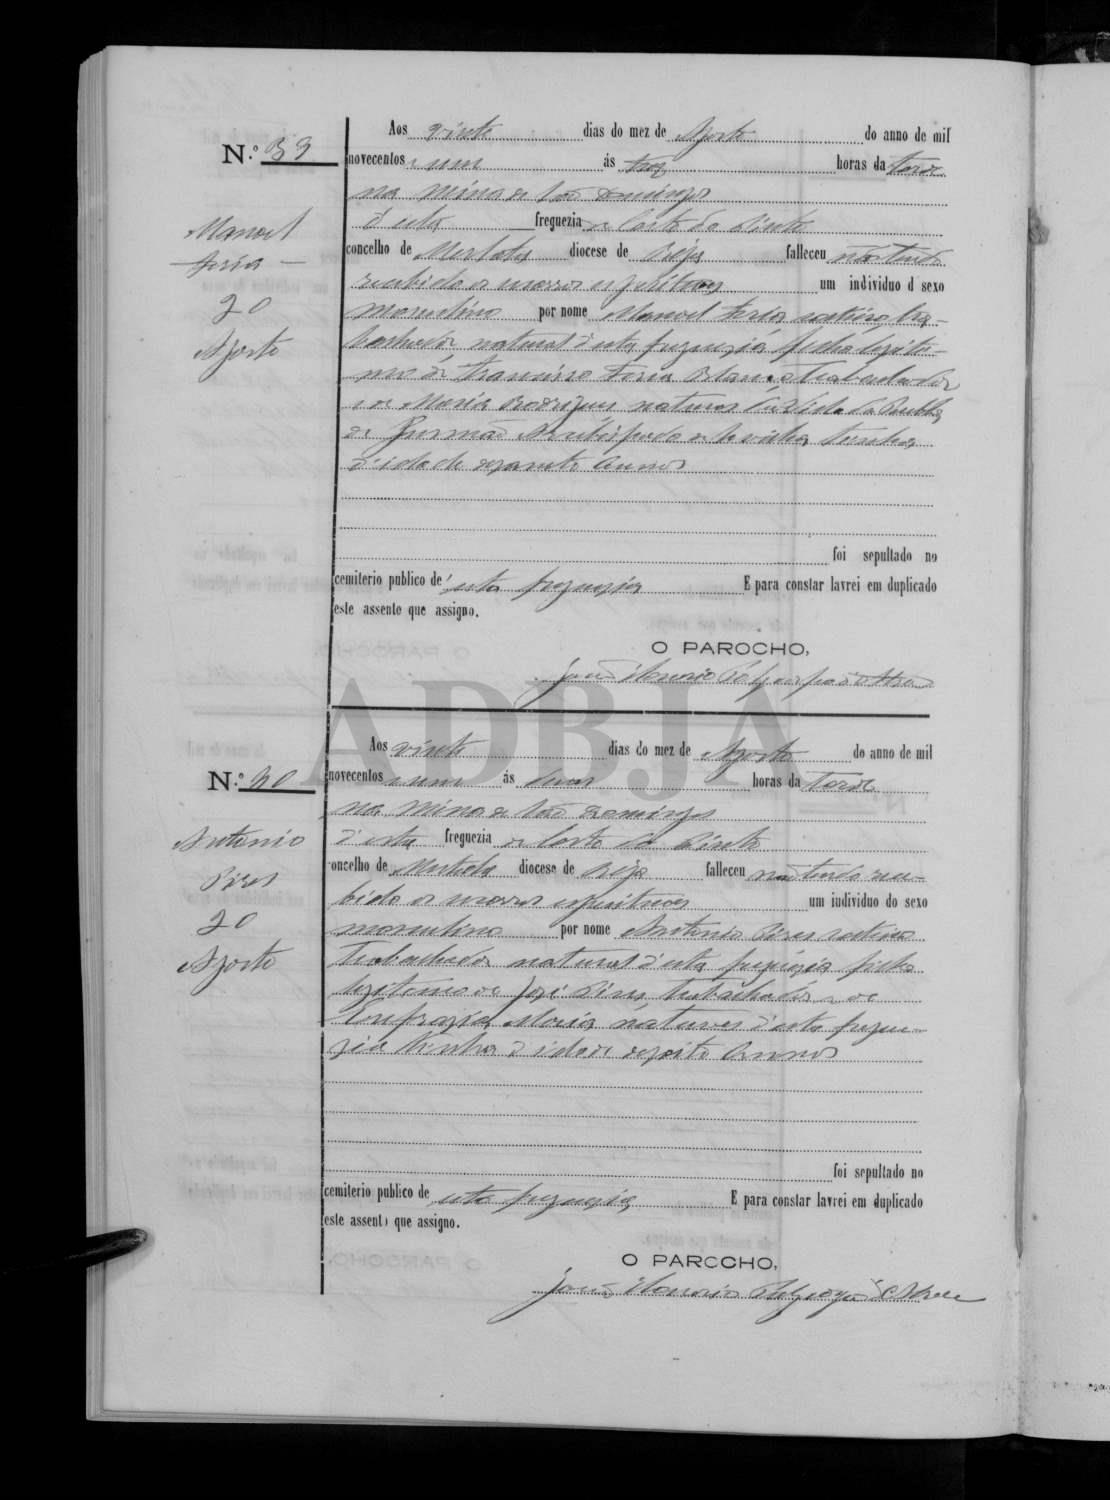 Aos vinte dias do mez de Agosto do anno de mil
Nº 39
novecentos e um ás trez horas da tarde
na mina de São Domingos
d'esta freguezia de Corte do Pinto
concelho de Mertola diocese de Béja falleceu não tendo
recebido os socorros espirituaes um individuo d sexo
masculino por nome Manoel Faria solteiro tra-
balhador natural d'esta freguezia filho legiti-
mo de Francisco Faria trabalhador
e de Maria Rodrigues naturaes da
de Gusmão Arcebispado de Sevilha tinha
d'idade annos
Manoel
Faria
20
Agosto
foi sepultado no
cemiterio publico d'esta freguezia E para constar lavrei em duplicado
este assento que assigno.
O PAROCHO,
João
ADBJA
Aos vinte dias do mez de Agosto do anno de mil
Nº 40
novecentos e um ás duas horas da tarde
na mina de São Domingos
d'esta freguezia de Corte do Pinto
concelho de Mertola diocese de Béja falleceu não tendo rece-
bido os socorros espirituaes um individuo do sexo
masculino por nome Antonio Pires solteiro
trabalhador natural d'esta freguezia filho
legitimo de José Pires trabalhador e de
Eufrazia Maria naturaes d'esta fregue-
zia tinha d'idade annos
Antonio
Pires
20
Agosto
foi sepultado no
cemiterio publico de esta freguezia E para constar lavrei em duplicado
este assento que assigno.
O PAROCHO,
João